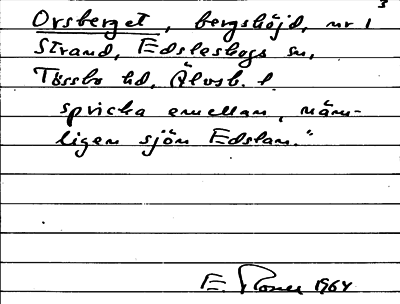 3
Orsberget, bergshöjd, nr 1
Strand, Edsleskogs sn,
Tössbo hd, Älvsb. l.
spricka emellan, näm-
ligen sjön Edslan."
E. 1964